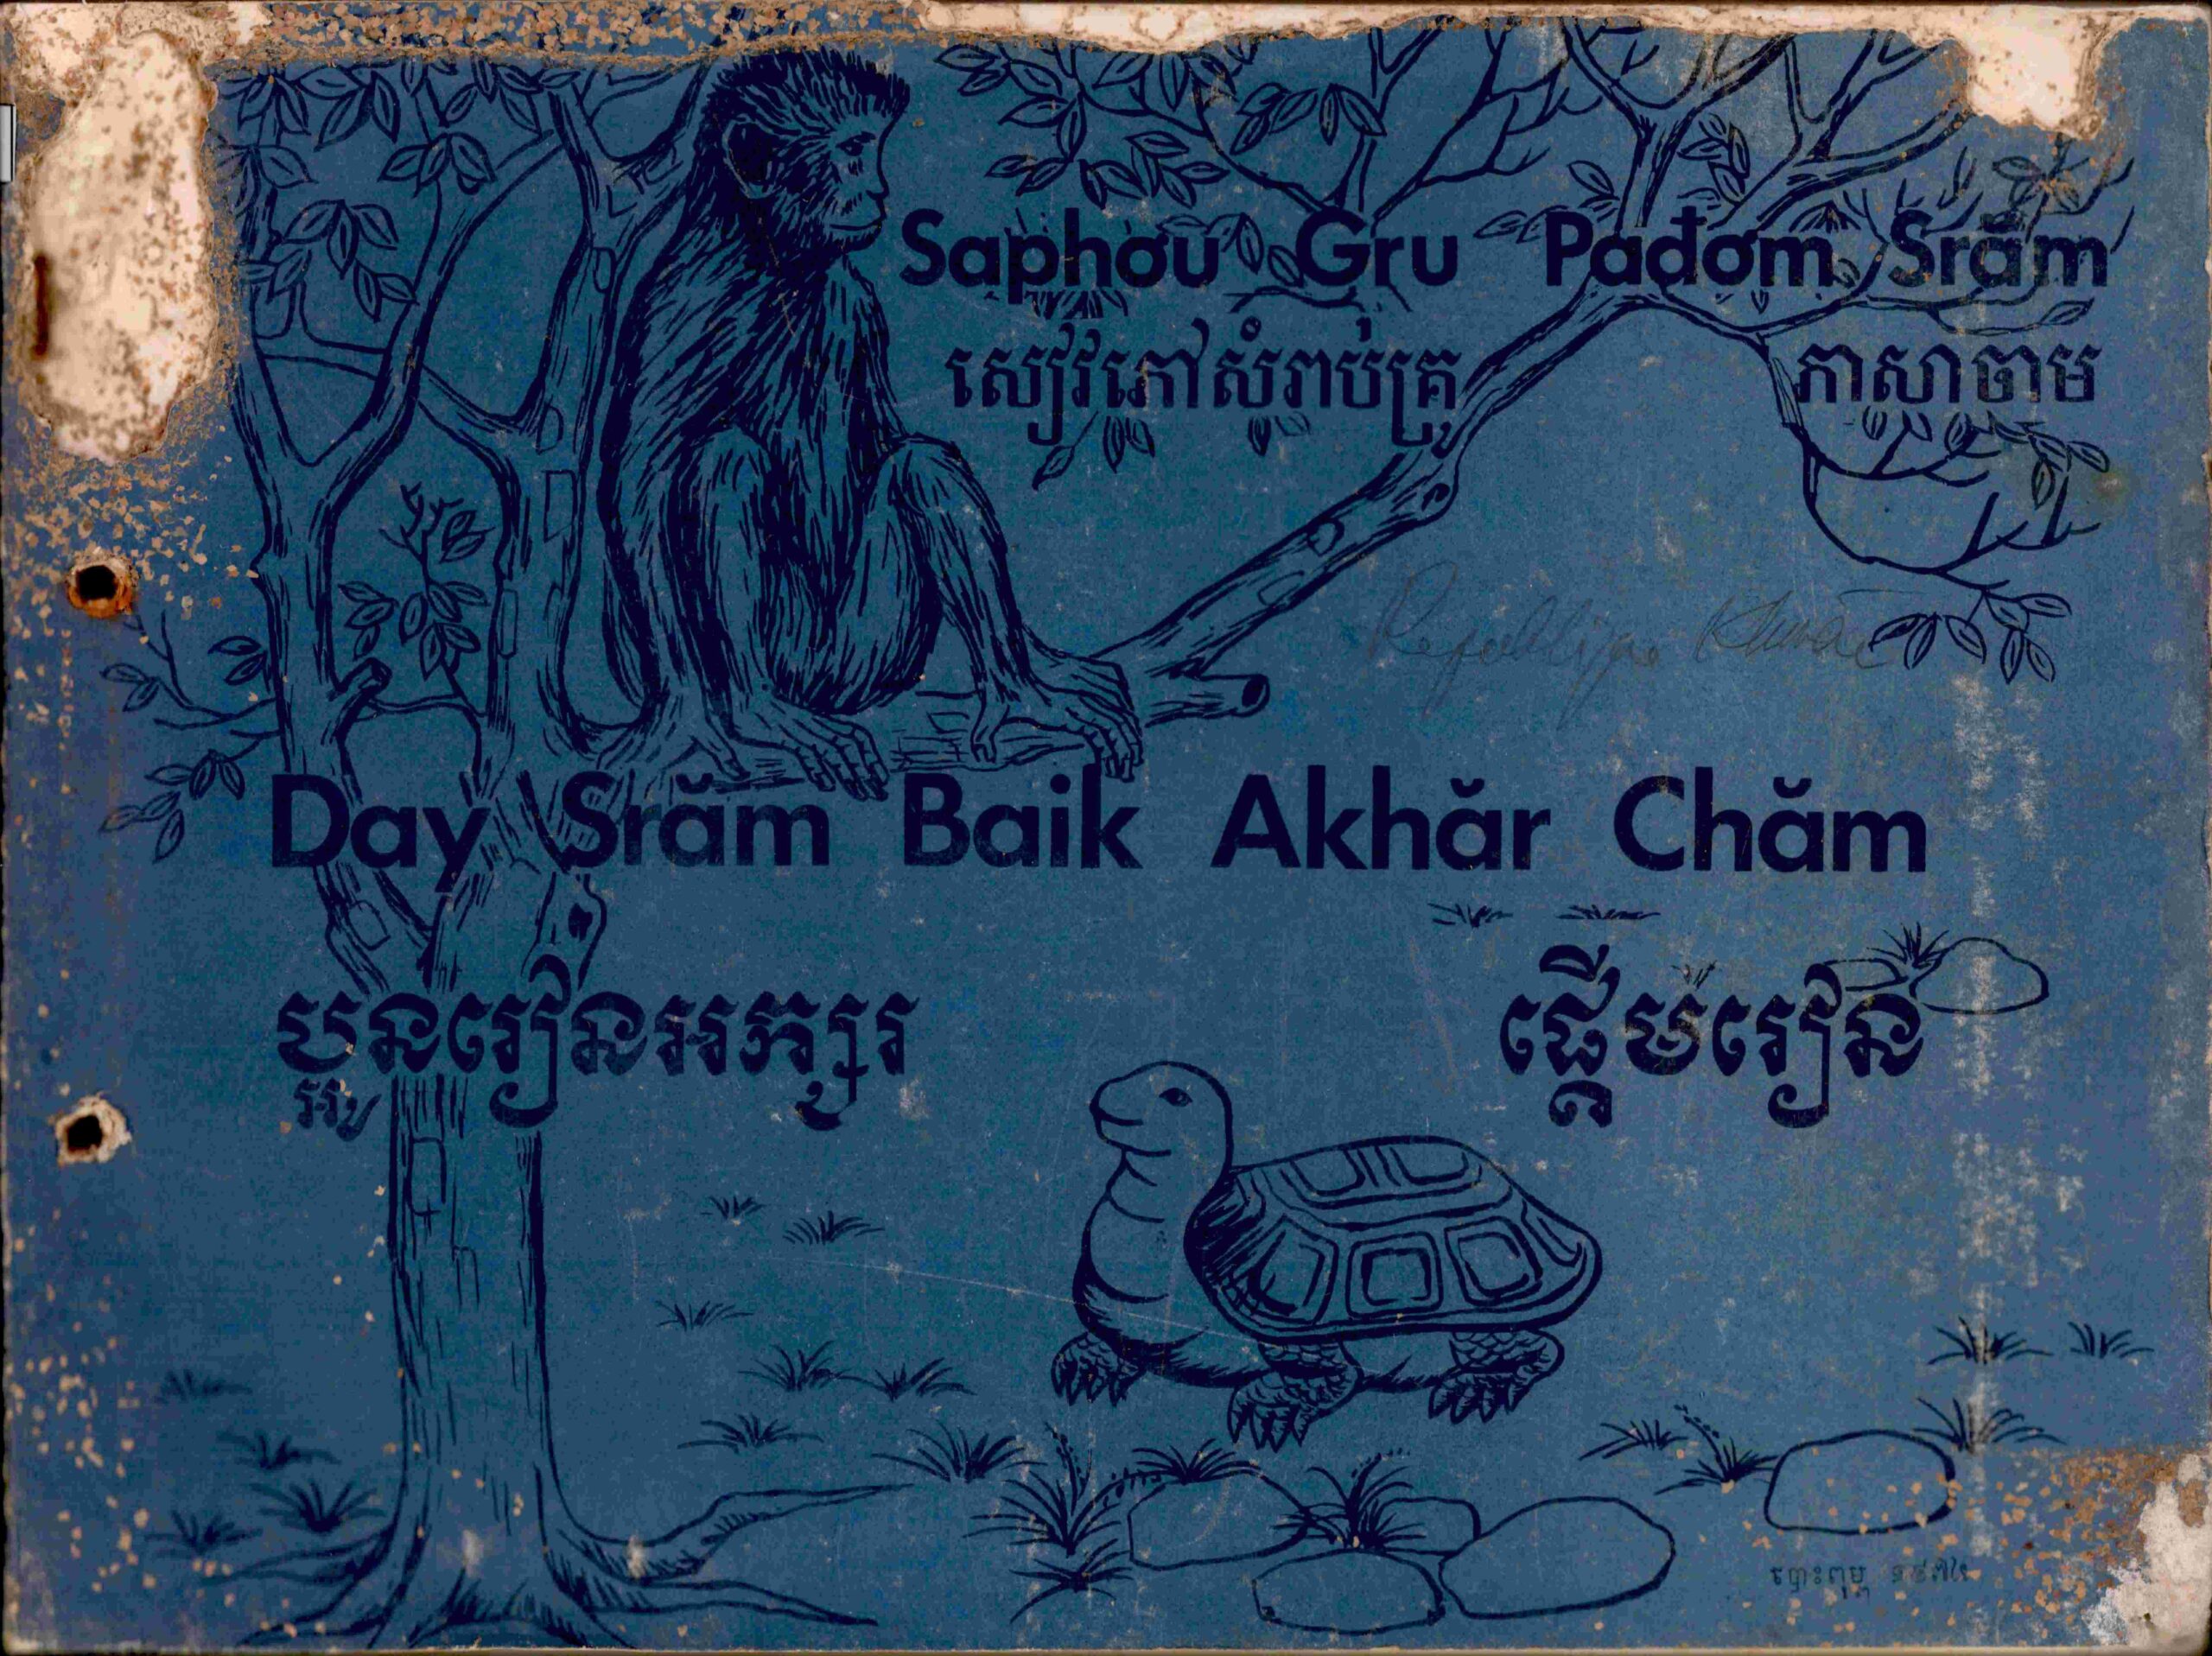 Saphơu Gru Pađơm Srăm
សៀវភៅសំរាប់គ្រូ ភាសាចាម
Republique Khmère
Day Srăm Baik Akhăr Chăm
ប្អូនរៀនអក្សរ ផ្ដើមរៀន
បោះពុម្ព